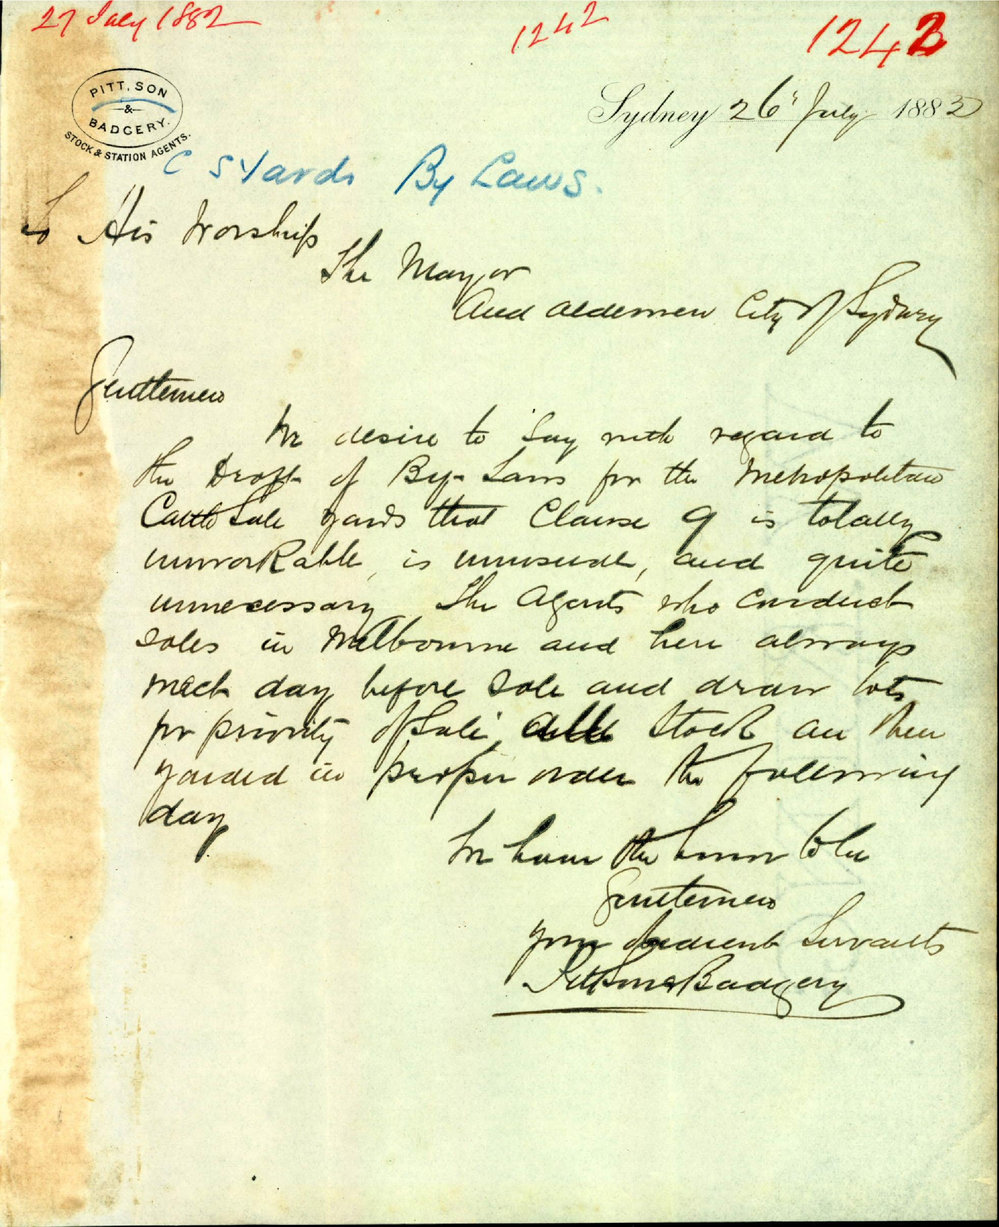 27 July 1882
1242
1242
PITT, SON
&
BADGERY.
STOCK & STATION AGENTS.
Sydney 26 July 1882
C S Yards By Laws.
To His Worship
The Mayor
And Aldermen City of Sydney
Gentlemen
We desire to say with regard to
the Draft of By-Laws for the Metropolitan
Cattle Sale yards that Clause 9 is totally
unworkable, is unusual, and quite
unnecessary The Agents who conduct
sales in Melbourne and here always
meet day before sale and draw lots
for priority of Sale, all Stock are then
yarded in proper order the following
day
We have the honor to be
Gentlemen
your obedient Servants
Pitt Son & Badgery